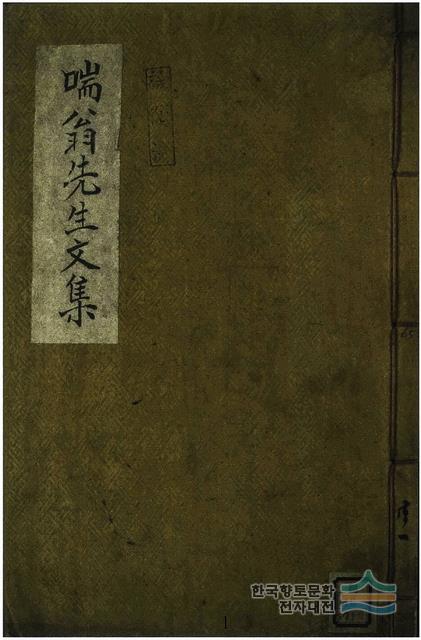 喘翁先生文集
한국향토문화
전자대전
1